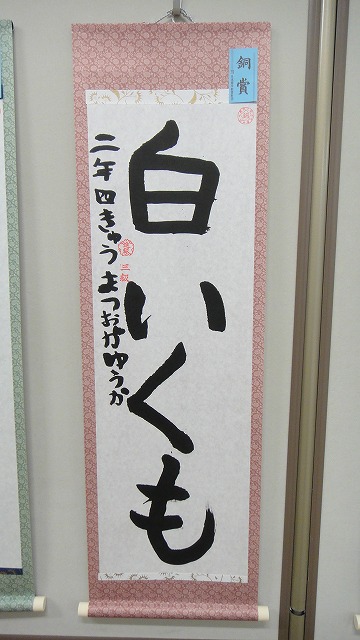 銅賞
白いくも
二年四きゅうまつおかゆうか
三級